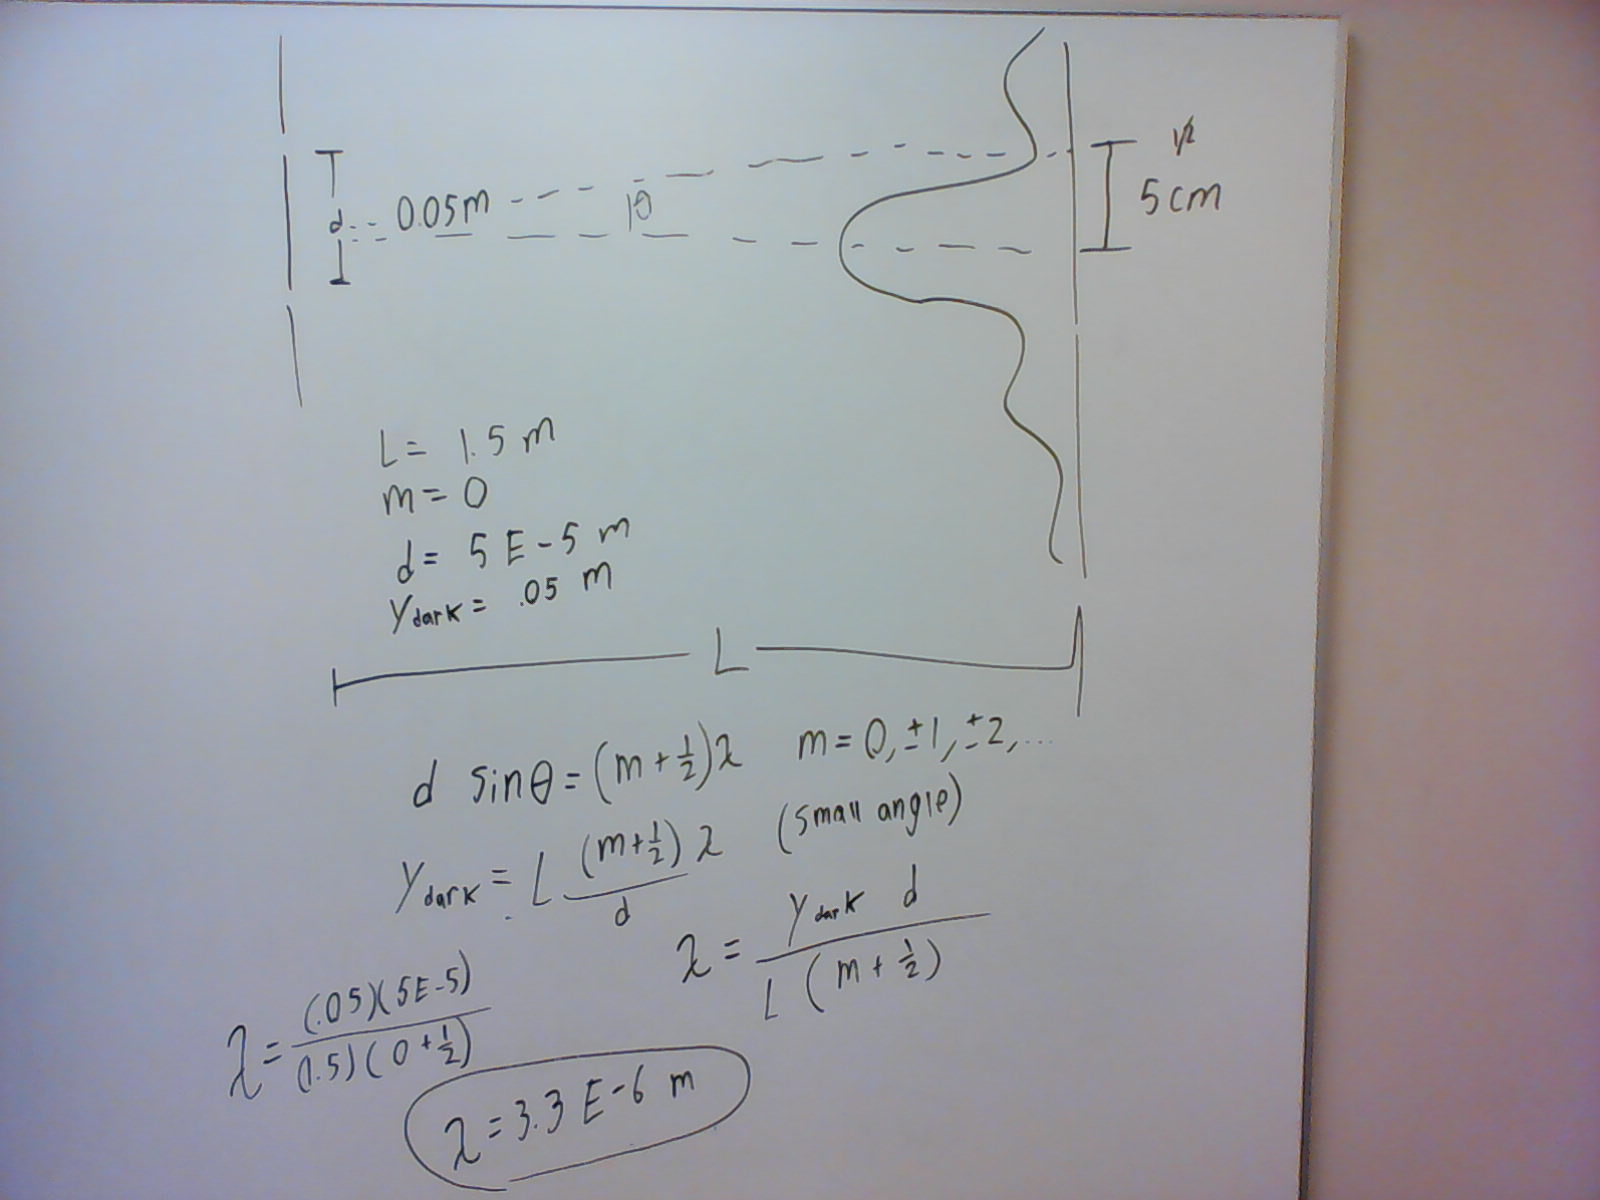 5 cm
d 0.05 m θ
L = 1.5 m
m = 0
d = 5 E - 5 m
y dark = .05 m
L
d sinθ = (m + 1/2)λ m = 0, ±1, ±2, ...
y dark = L (m + 1/2) λ / d (small angle)
λ = y dark d / L (m + 1/2)
λ = (.05)(5E-5) / (1.5)(0 + 1/2)
λ = 3.3 E-6 m